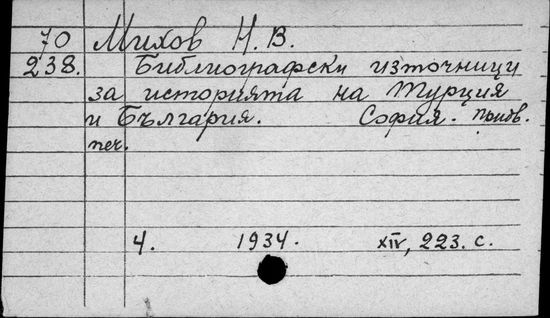 70 Михов Н. В.
238. Библиографски източници
за историята на Турция
и България. София. Придв.
печ.
4. 1934. XIV, 223. с.